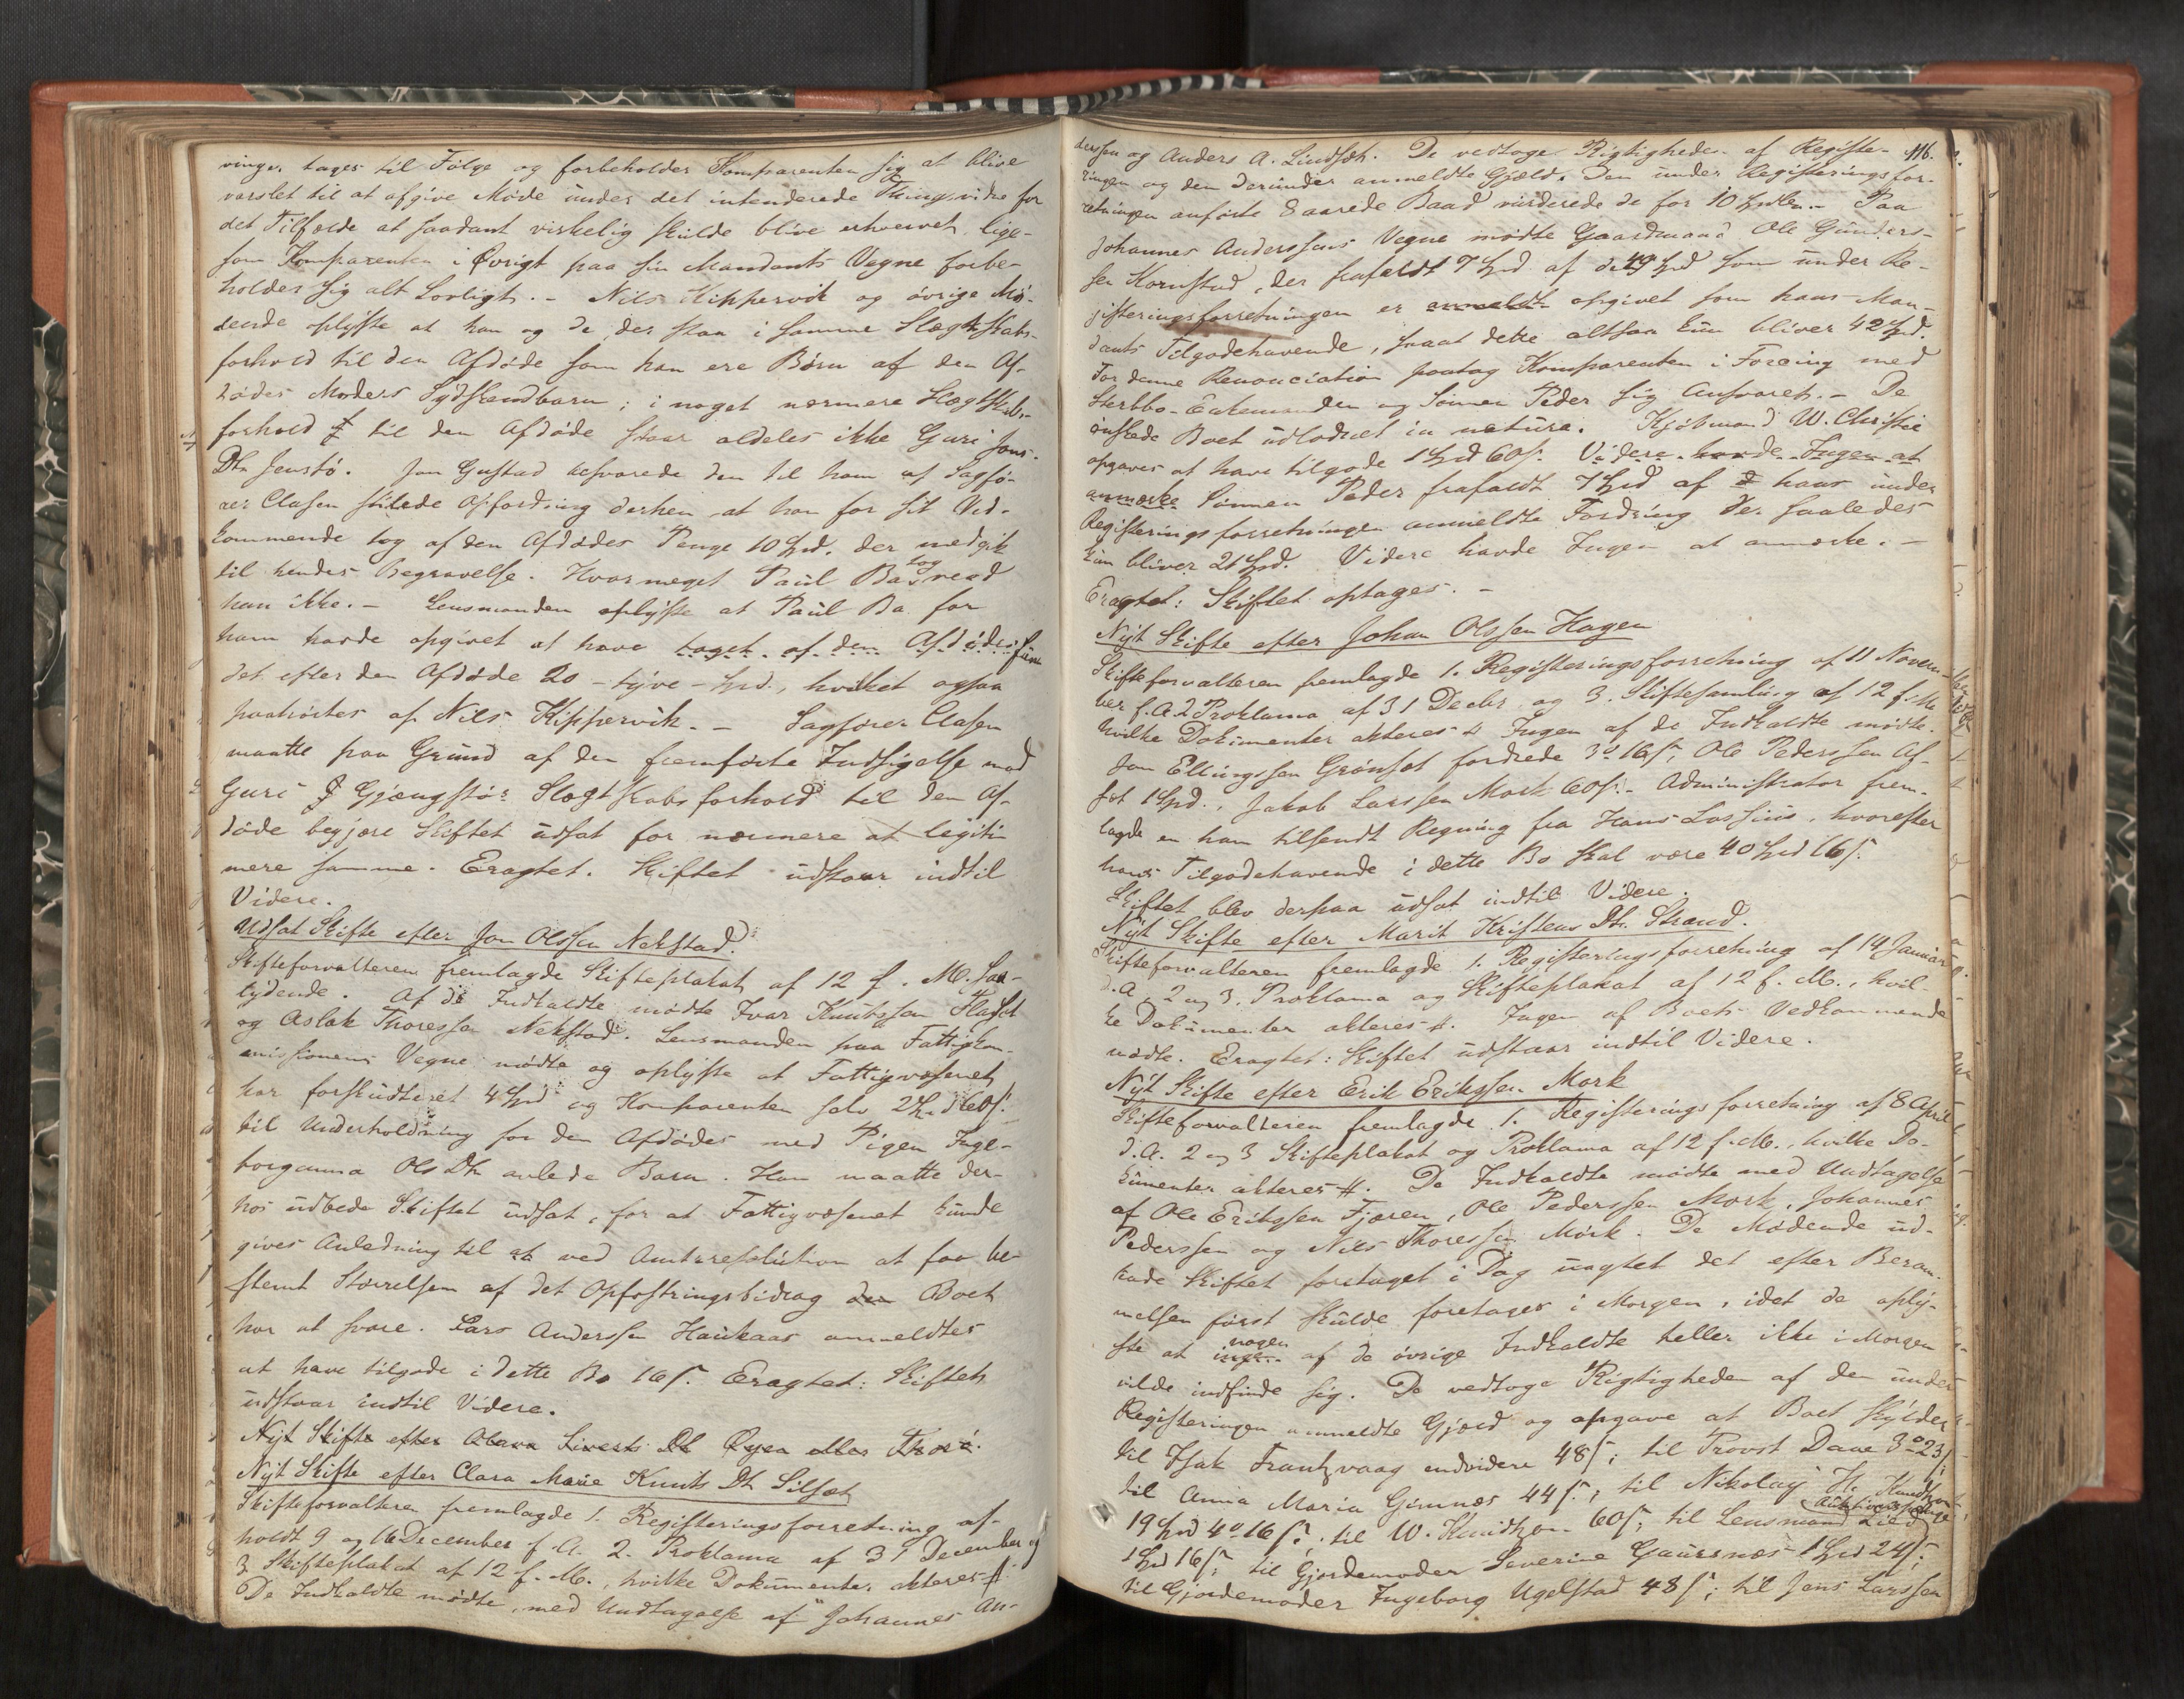 vinger tages til Følge og forbeholder Komparenten sig at blive
varslet til at afgive Møde under det intenderede Thingsvidne for
det Tilfælde at saadant virkelig skulde blive erhvervet, lige-
som Komparenten i Øvrigt paa sin Mandants Vegne forbe-
holder sig alt Lovligt. - Nils Kippervik og øvrige Mø-
dende oplyste at han og de, der staa i samme Slægtskabs-
forhold til den Afdøde som han ere Børn af den Af-
dødes Moders Sydskendbarn; i noget nærmere Slægtskabs-
forhold til den Afdøde staar aldeles ikke Guri Jons
Dtr Jenstø. Jon Gustad besvarede den til ham af Sagfø-
rer Clasen stilede Opfordring derhen at han for sit Ved-
kommende tog af den Afdødes Penge 10 Spd. der medgik
til hendes Begravelse. Hvormeget Paul Ba tog veed
han ikke. - Lensmanden oplyste at Paul Ba for
ham havde opgivet at have taget af den Afdødes
det efter den Afdøde 20 - tyve - Spd., hvilket ogsaa
paahørtes af Nils Kippervik. - Sagfører Clasen
maatte paa Grund af den fremførte Indsigelse mod
Guri J Gjængstøs Slægtskabsforhold til den Af-
døde begjære Skiftet udsat for nærmere at legiti-
mere samme. Eragtet. Skiftet udstaar indtil
Videre.
Udsat Skifte efter Jon Olssen Nekstad.
Skifteforvalteren fremlagde Skifteplakat af 12 f. M. saa-
lydende. Af de Indkaldte mødte Ivar Knutssen Hadsel
og Aslak Thoressen Nekstad. Lensmanden paa Fattigkom-
missionens Vegne mødte og oplyste at Fattigvæsenet
har forskudteret 4 Spd og Komparenten selv 2 Spd 60 s.
til Underholdning for den Afdødes med Pigen Inge-
borganna Ols Dtr avlede Barn. Han maatte der-
hos udbede Skiftet udsat, for at Fattigvæsenet kunde
gives Anledning til at ved Amtsresolution at faa be-
stemt Størrelsen af det Opfostringsbidrag den Boet
har at svare. Lars Anderssen Haukaas anmeldtes
at have tilgode i dette Bo 16 s. Eragtet: Skiftet
udstaar indtil Videre.
Nyt Skifte efter Siverts Dtr Øyen
Nyt Skifte efter Clara Marie Knuts Dtr Silset
Skifteforvalteren fremlagde 1. Registeringsforretning af-
holdt 9 og 16 December f. A. 2. Proklama af 31 December og
3 Skifteplakat af 12 f. M., hvilke Dokumenter akteres #
De Indkaldte mødte, med Undtagelse af Johannes An-
116.
derssen og Anders A. Lindset. De vedtoge Rigtigheden af Registe-
ringen og den derunder anmeldte Gjæld. Den under Registeringsfor-
retningen anførte 8 aarede Baad vurderede de for 10 Spdlr. - Paa
Johannes Anderssens Vegne mødte Gaardmand Ole Gunders-
sen Kornstad, der frafaldt 7 Spd af de 49 Spd som under Re-
gisteringsforretningen er anmeldt opgivet som hans Man-
dants Tilgodehavende, saaat dette altsaa kun bliver 42 Spd.
For denne Renonciation paatog Komparenten i Forening med
Sterbbo-Enkemanden og Sønnen Peder sig Ansvaret. - De
ønskede Boet udloddet in natura. Kjøbmand W. Christie
opgaves at have tilgode 1 Spd 60 s. Videre havde Ingen at
anmærke Sønnen Peder frafaldt 7 Spd af hans under
Registeringsforretningen anmeldte Fordring der saaledes
kun bliver 21 Spd. Videre havde Ingen at anmærke. -
Eragtet: Skiftet optages. -
Nyt Skifte efter Johan Olssen Hagen
Skifteforvalteren fremlagde 1. Registeringsforretning af 11 Novem-
ber f. A. 2 Proklama af 31 Decbr. og 3. Skiftesamling af 12 f. M.
hvilke Dokumenter akteres # Ingen af de Indkaldte mødte.
Jon Ellingssen Grønset fordrede 3 o 16 s, Ole Pederssen Af-
set 1 Spd., Jakob Larssen Mork 60 s. - Administrator frem-
lagde en ham tilsendt Regning fra Hans Lossius, hvorefter
hans Tilgodehavende i dette Bo skal være 40 Spd 16 s.
Skiftet blev derpaa udsat indtil Videre.
Nyt Skifte efter Marit Kristens Dtr. Strand.
Skifteforvalteren fremlagde 1. Registeringsforretning af 14 Januar
d. A., 2 og 3. Proklama og Skifteplakat af 12 f. M., hvil-
ke Dokumenter akteres #. Ingen af Boets Vedkommende
mødte. Eragtet: Skiftet udstaar indtil Videre.
Nyt Skifte efter Erik Erikssen Mork
Skifteforvalteren fremlagde 1. Registeringsforretning af 8 April
d. A. 2 og 3 Skifteplakat og Proklama af 12 f. M., hvilke Do-
kumenter akteres #. De Indkaldte mødte med Undtagelse
af Ole Erikssen Fjæren, Ole Pederssen Mork, Johannes
Pederssen og Nils Thoressen Mork. De Mødende ud-
bade Skiftet foretaget i Dag uagtet det efter Beram-
melsen først skulde foretages i Morgen, idet de oply-
ste at ingen nogen af de øvrige Indkaldte heller ikke i Morgen
vilde indfinde sig. De vedtoge Rigtigheden af den under
Registeringen anmeldte Gjæld og opgave at Boet skylder
til Isak Frantzvaag endvidere 48 s; til Provst Daae 3 o 23 s;
til Anna Maria Gimnæs 44 s.; til Nikolay H. Knudtzon
19 Spd 4 o 16 s; til W. Knudtzon 60 s; til Lensmand Lied Auktionspenge
1 Spd 16 s; til Gjordemoder Severine Gaursnæs 1 Spd 24 s;
til Gjordemoder Ingeborg Ugelstad 48 s; til Jens Larssen